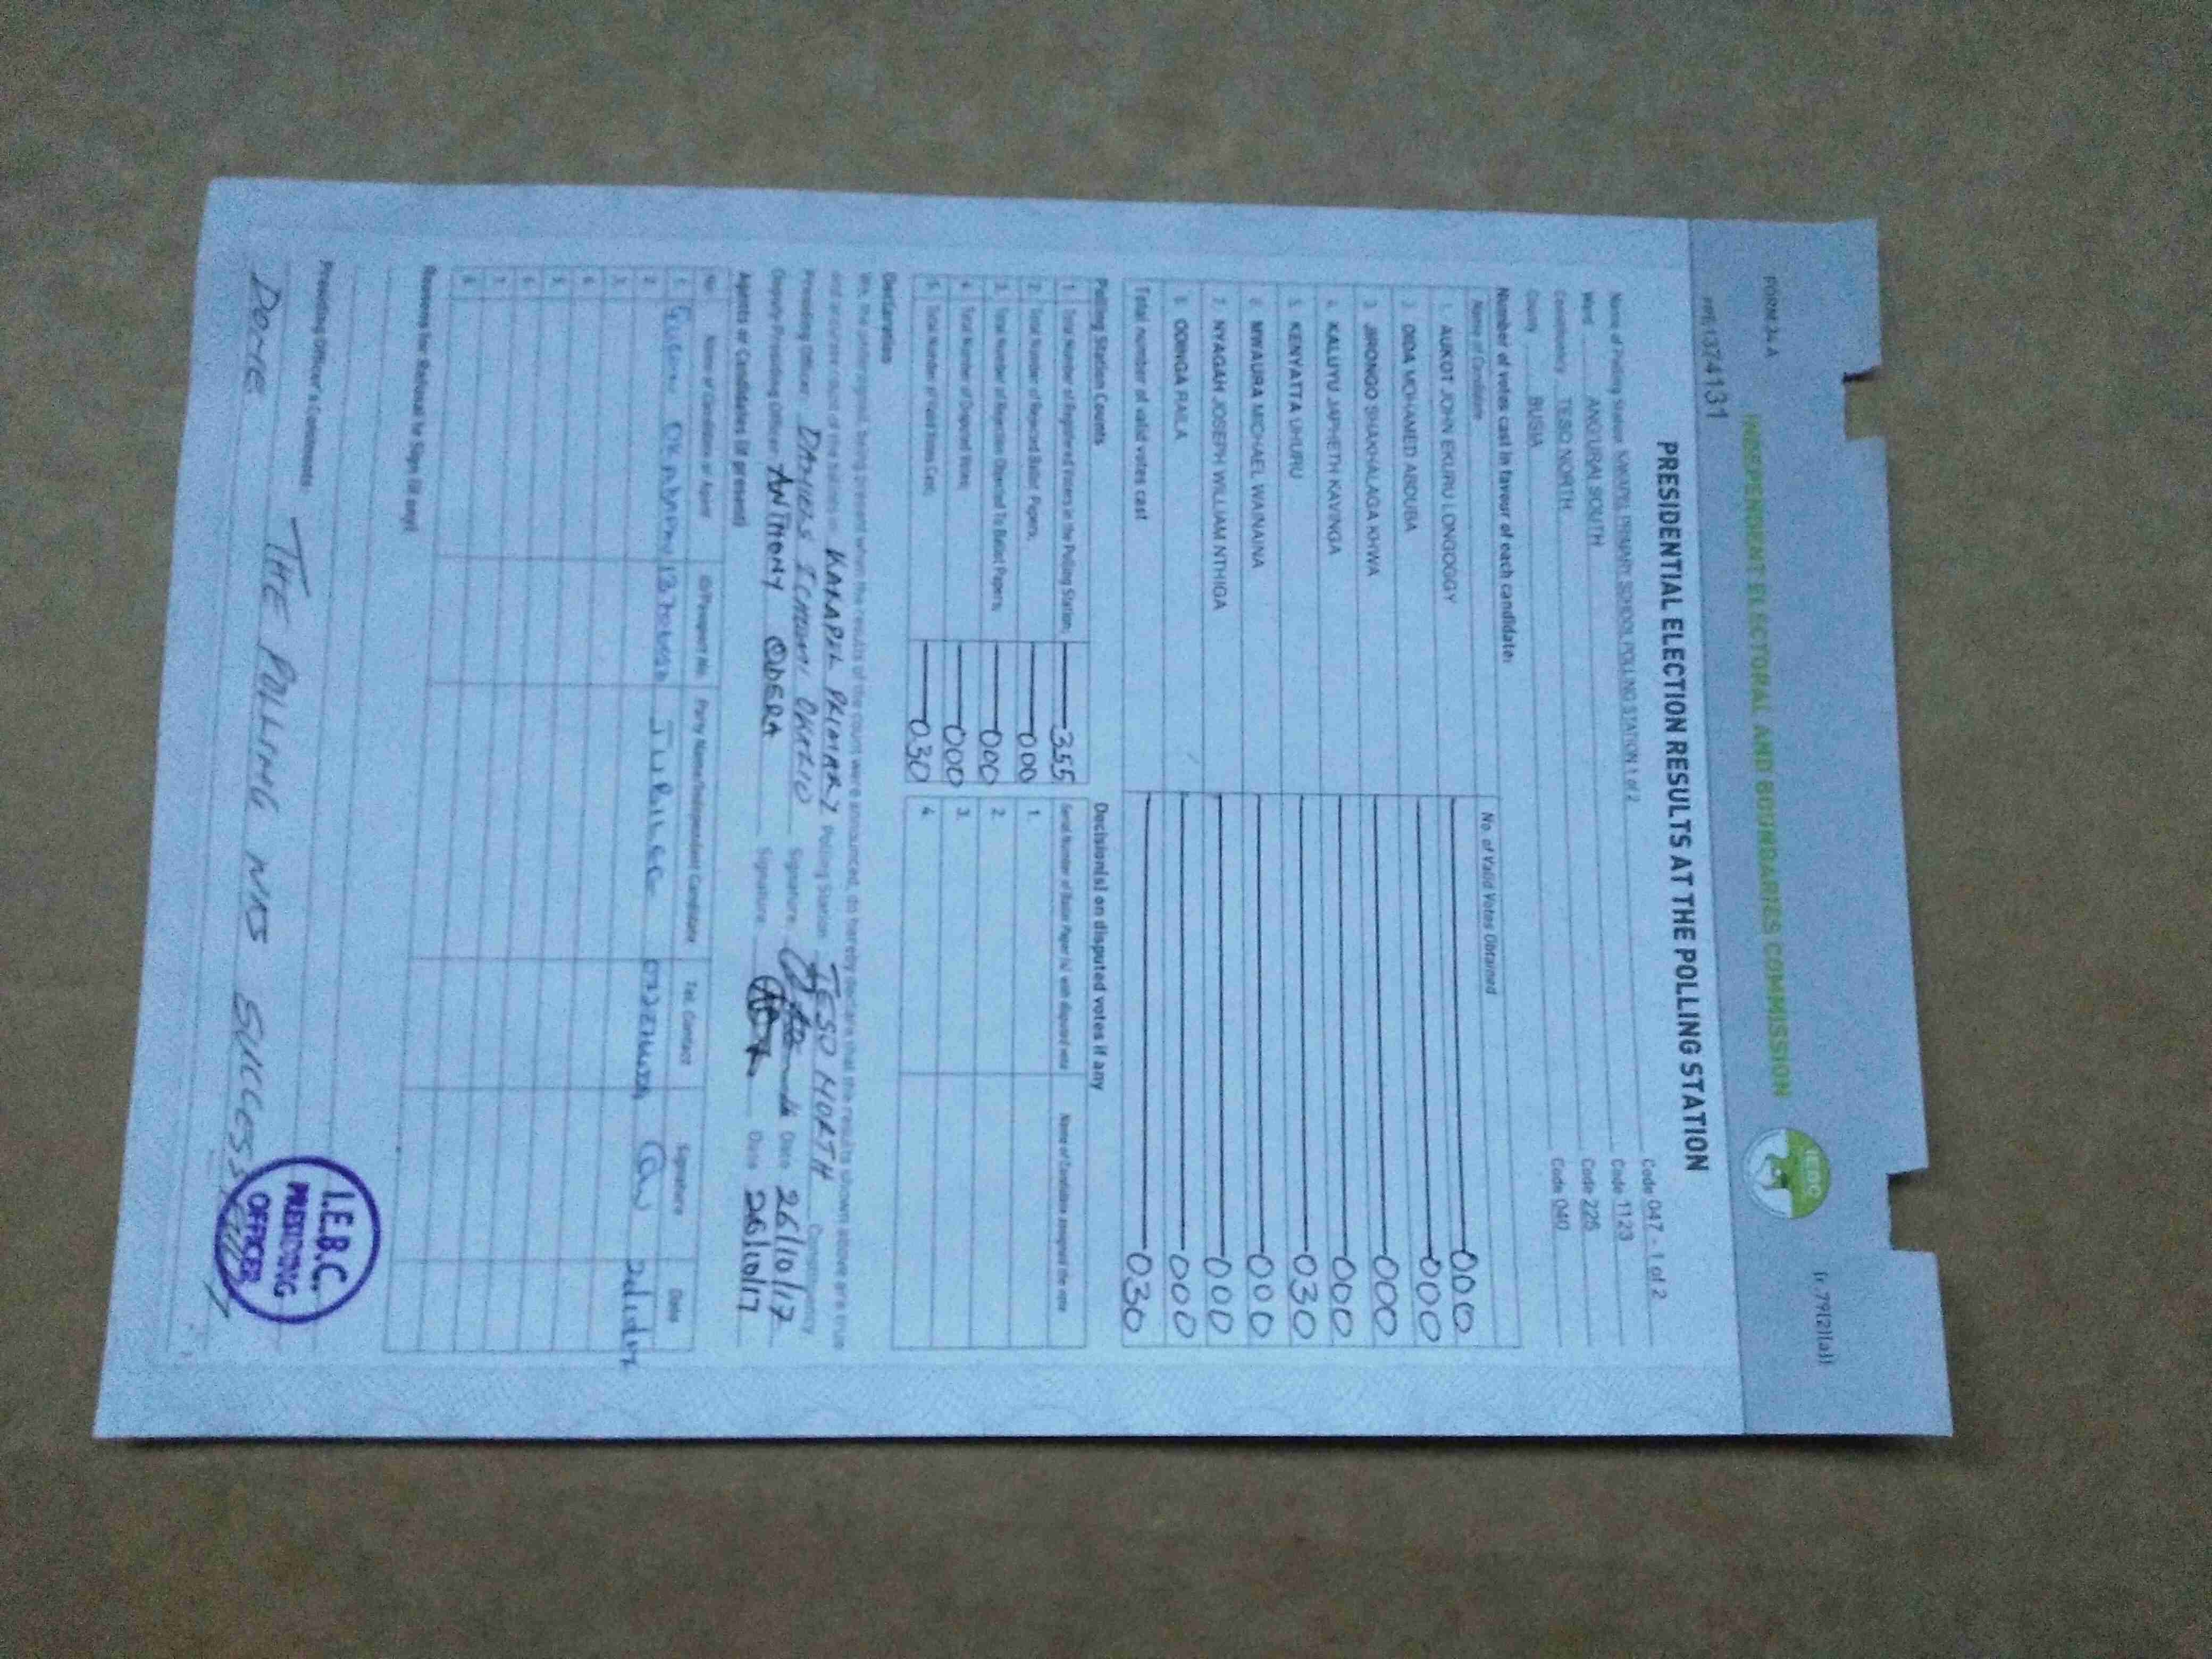 FORM 34 A
(r.79(2)(a))
INDEPENDENT ELECTORAL AND BOUNDARIES COMMISSION
I.E.B.C
PRE1374131
PRESIDENTIAL ELECTION RESULTS AT THE POLLING STATION
Name of Polling Station PRIMARY SCHOOL POLLING STATION 1 of 2 Code 047 - 1 of 2
Ward ANG'URAI SOUTH Code 1123
Constituency TESO NORTH Code 226
County BUSIA Code 040
Number of votes cast in favour of each candidate:
Name of Candidate No. of Valid Votes Obtained
1. AUKOT JOHN EKURU LONGOGGY 000
2. DIDA MOHAMED ABDUBA 000
3. JIRONGO SHAKHALAGA KHWA 000
4. KALUYU JAPHETH KAVINGA 000
5. KENYATTA UHURU 030
6. MWAURA MICHAEL WAINAINA 000
7. NYAGAH JOSEPH WILLIAM NTHIGA 000
8. ODINGA RAILA 000
Total number of valid votes cast 030
Polling Station Counts
1. Total Number of Registered Voters in the Polling Station; 355
2. Total Number of Rejected Ballot Papers; 000
3. Total Number of Rejection Objected To Ballot Papers; 000
4. Total Number of Disputed Votes; 000
5. Total Number of Valid Votes Cast; 030
Decision(s) on disputed votes if any
Serial Number of Ballot Paper (s) with disputed vote Name of Candidate assigned the vote
1.
2.
3.
4.
Declaration
We, the undersigned, being present when the results of the count were announced, do hereby declare that the results shown above are true
and accurate count of the ballots in KAKAPEL PRIMARY Polling Station TESO NORTH Constituency
Presiding Officer: Signature Date 26/10/17
Deputy Presiding Officer: ANTHONY ODERA Signature Date 26/10/17
Agents or Candidates (if present)
No Name of Candidate or Agent ID/Passport No. Party Name/Independent Candidate Tel. Contact Signature Date
1. JUBILEE
2.
3.
4.
5.
6.
7.
8.
Reasons for Refusal to Sign (if any)
Presiding Officer's Comments: THE POLLING WAS SUCCESSFULLY
DONE
I.E.B.C.
PRESIDING
OFFICER